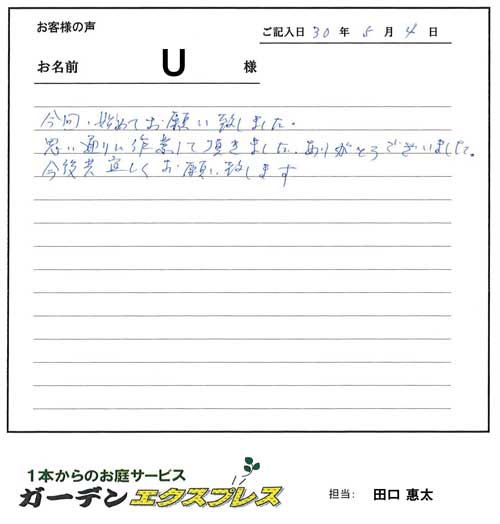 お客様の声
ご記入日 30 年 5 月 4 日
お名前 U 様
今回、始めてお願い致しました。
思い通りに作業して頂きました。ありがとうございました。
今後共宜しくお願い致します
1本からのお庭サービス
ガーデンエクスプレス
担当: 田口 惠太